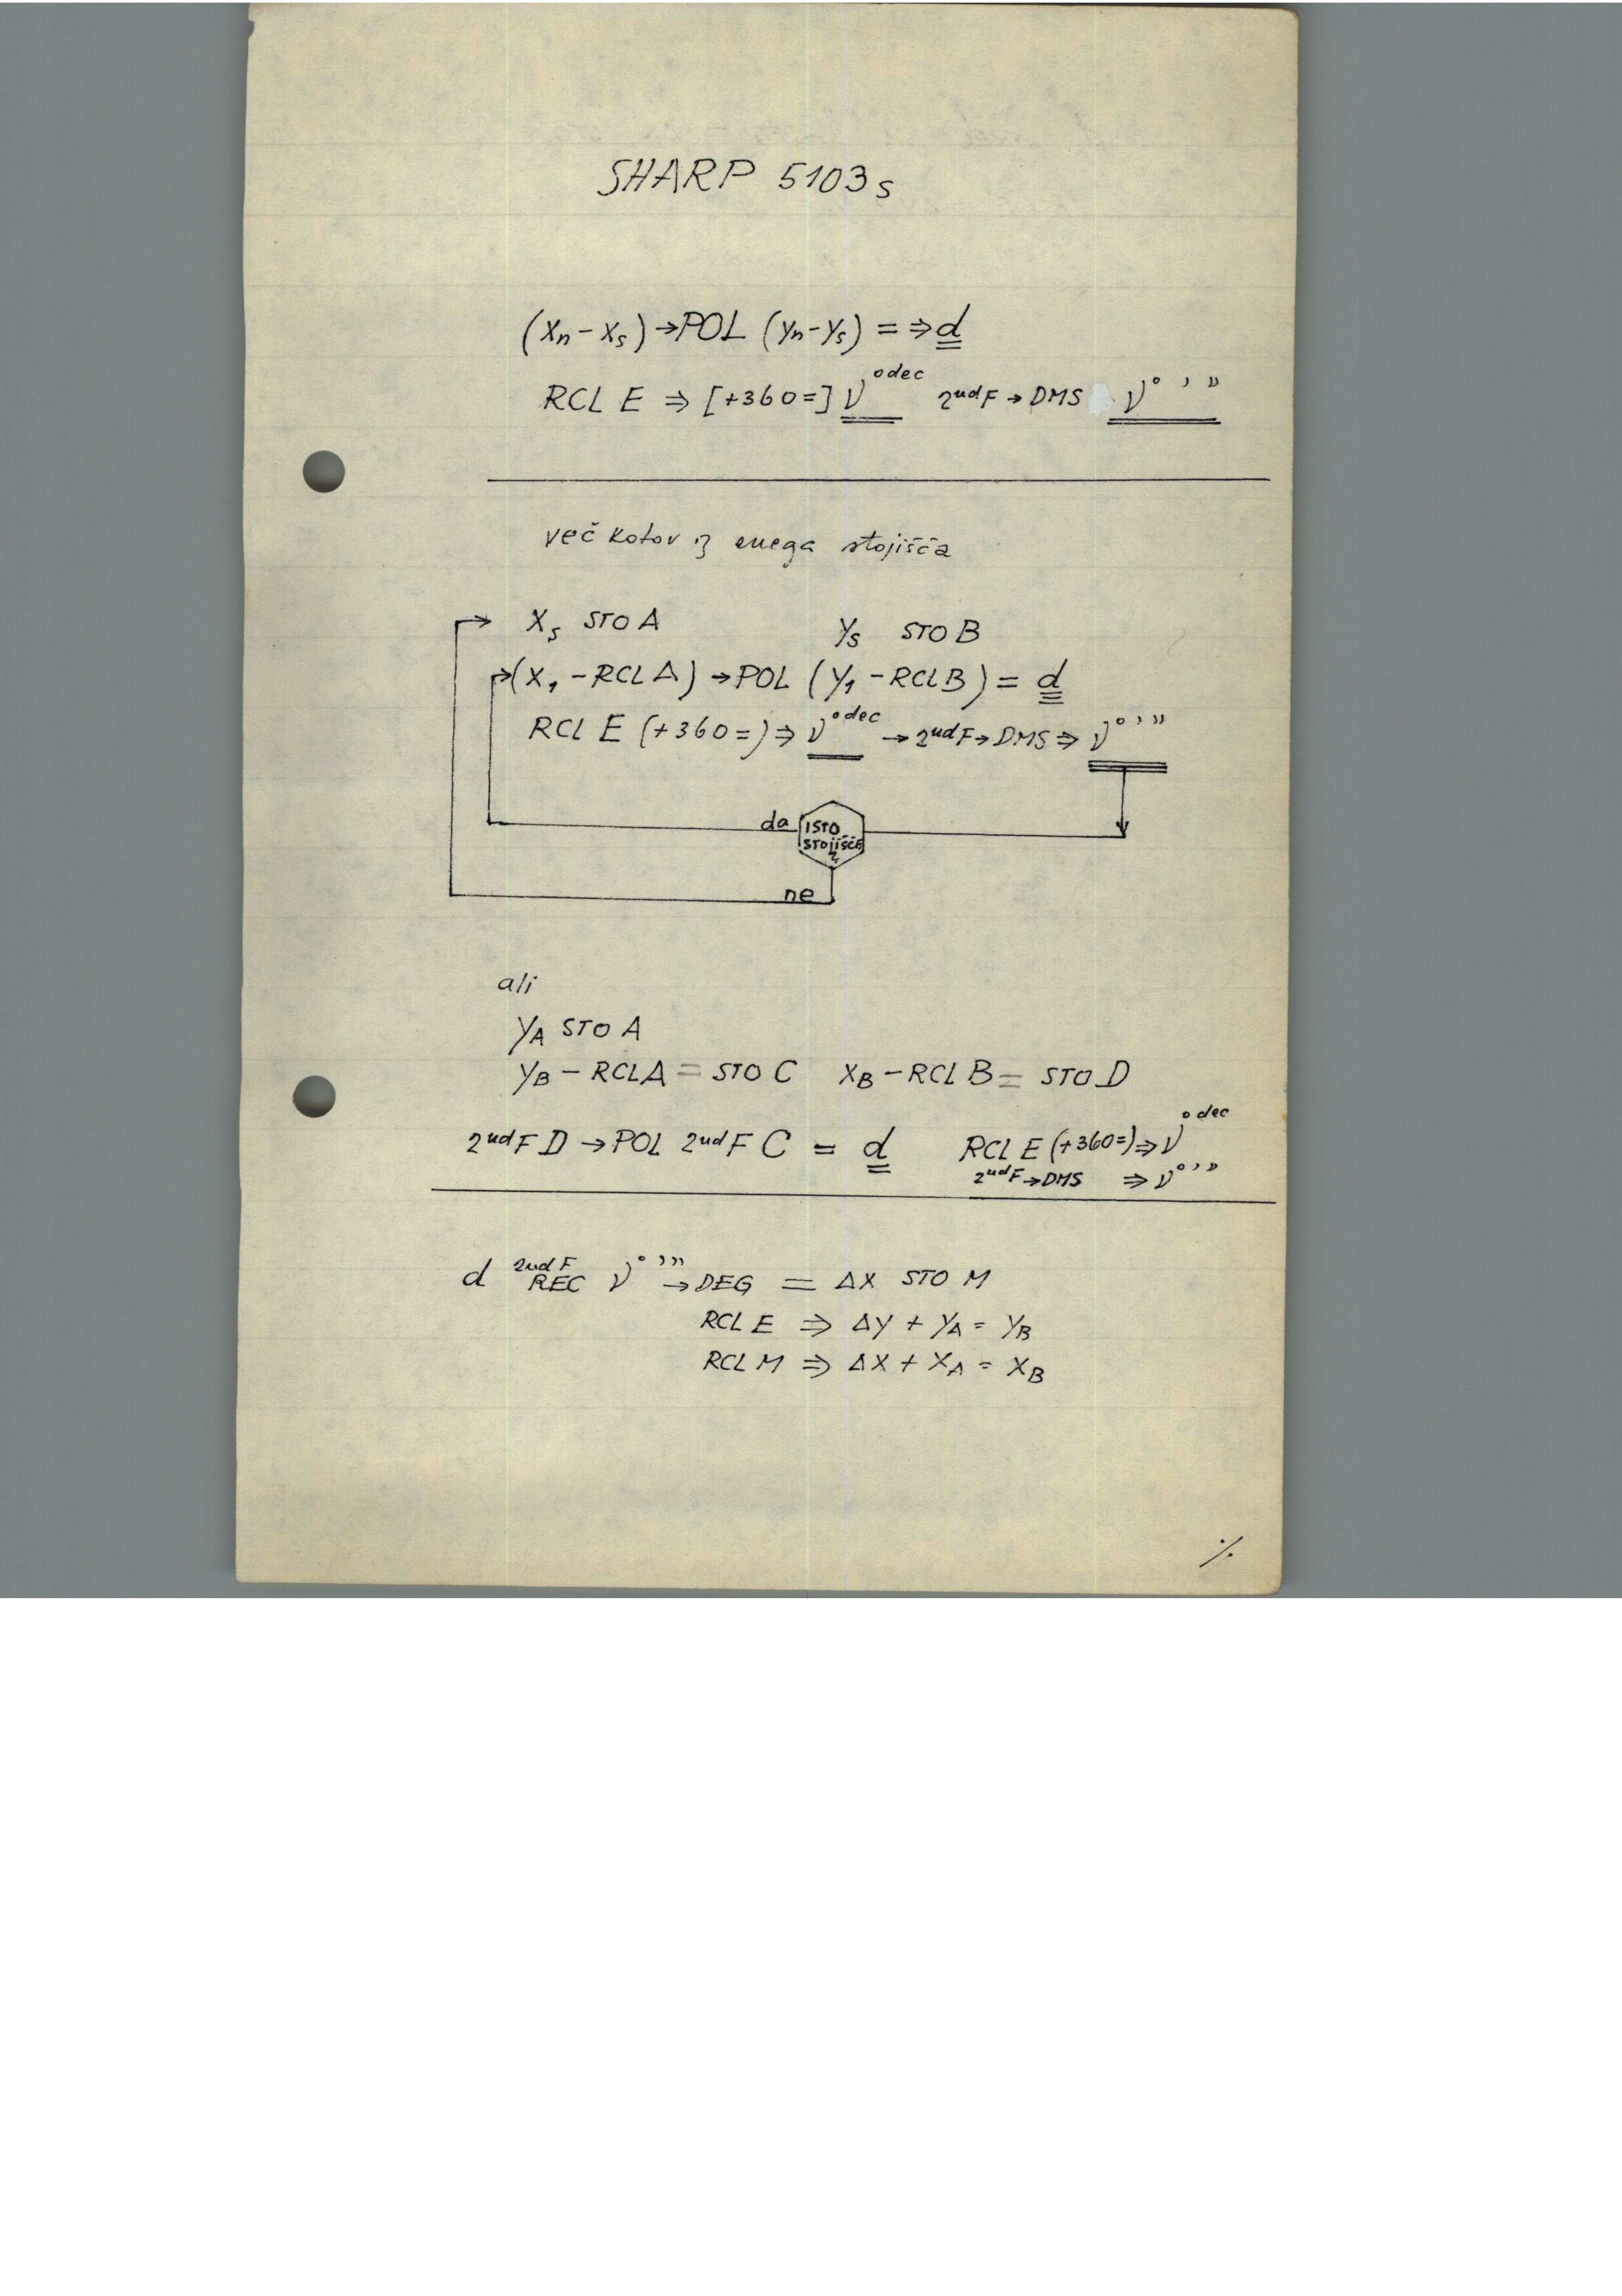 SHARP 5103s
(Xn - Xs) →POL (Yn - Ys) = ⇒ d
RCL E ⇒ [+360=] ν°dec 2ndF → DMS ν° ' "
več kotov iz enega stojišča
Xs STO A Ys STO B
(X1 - RCL A) → POL (Y1 - RCL B) = d
RCL E (+360=) ⇒ ν°dec → 2ndF → DMS ⇒ ν° ' "
da ISTO
STOJIŠČE
?
ne
ali
YA STO A
YB - RCL A = STO C XB - RCL B = STO D
2ndF D → POL 2ndF C = d RCL E (+360=) ⇒ ν°dec
2ndF → DMS ⇒ ν° ' "
d 2ndF REC ν° ' " → DEG = ΔX STO M
RCL E ⇒ ΔY + YA = YB
RCL M ⇒ ΔX + XA = XB
./.